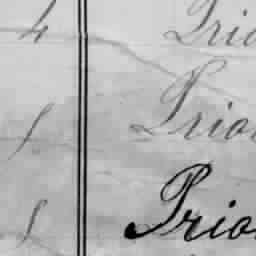 4 Prio
1 Prior
1 Prior